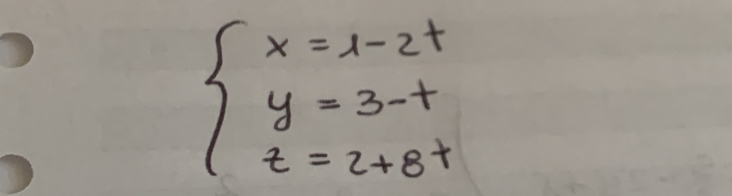 x = 1-2t
y = 3-t
z = 2+8t